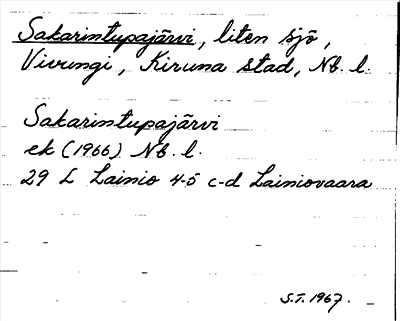 Sakarintupajärvi, liten sjö,
Vivungi, Kiruna stad, Nb. l.
Sakarintupajärvi
ek (1966) Nb. l.
29 L Lainio 4-5 c-d Lainiovaara
S.T. 1967.